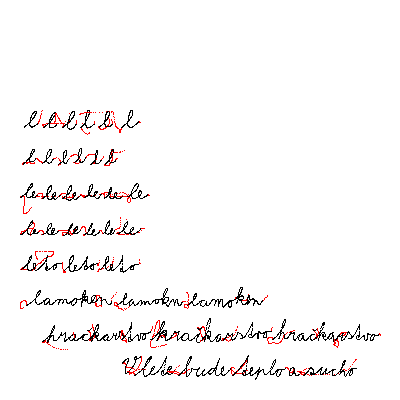 l l l t l l
l l l l l t
le le le le le le
le le le le le le
leto leto leto
lamokn lamokn lamokn
hračkarstvo hračkarstvo hračkarstvo
V lete bude teplo a sucho